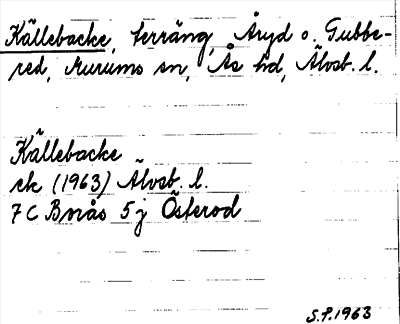 Källebacke, terräng, Åryd o. Gubbe-
red, Murums sn, Ås hd, Älvsb. l.
Källebacke
ek (1963) Älvsb. l.
7C Borås 5j Österod
S.P. 1963